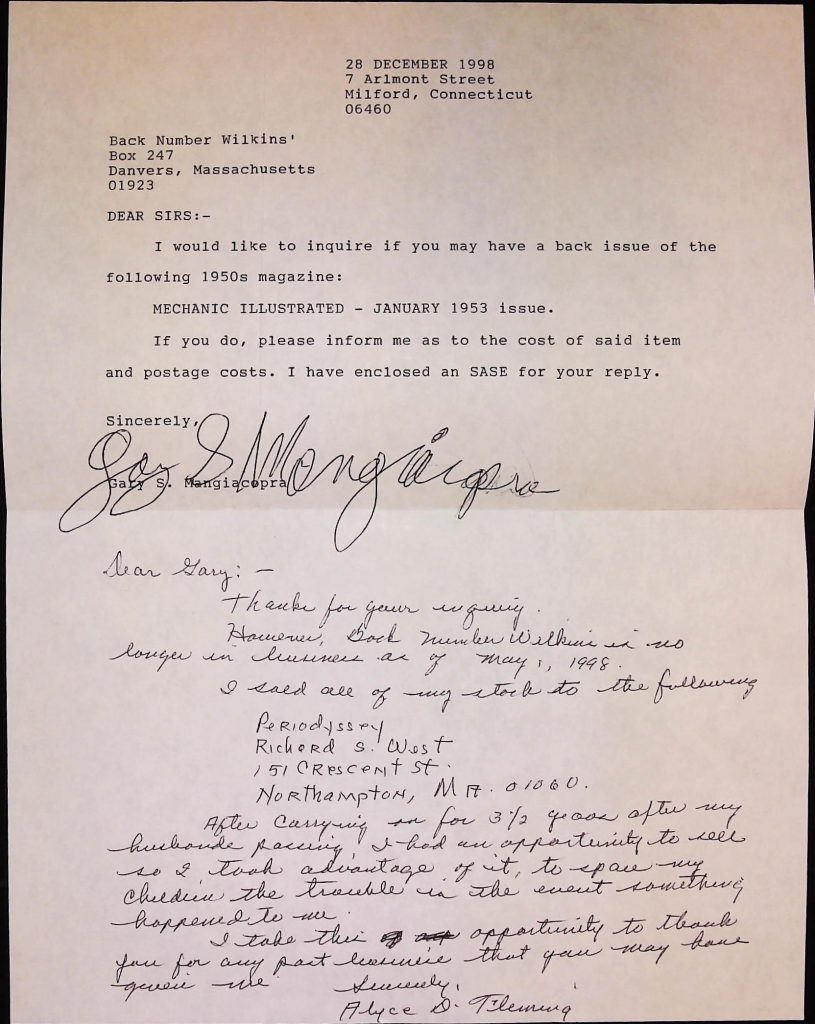 28 DECEMBER 1998
7 Arlmont Street
Milford, Connecticut
06460
Back Number Wilkins'
Box 247
Danvers, Massachusetts
01923
DEAR SIRS:-
I would like to inquire if you may have a back issue of the
following 1950s magazine:
MECHANIC ILLUSTRATED - JANUARY 1953 issue.
If you do, please inform me as to the cost of said item
and postage costs. I have enclosed an SASE for your reply.
Sincerely,
Gary S Mangiacopra
Gary S. Mangiacopra
Dear Gary: -
Thanks for your inquiry.
However, Back Number Wilkins is no
longer in business as of May 1, 1998.
I sold all of my stock to the following
Periodyssey
Richard S. West
151 Crescent St.
Northampton, MA. 01060.
After carrying on for 3 1/2 years after my
husbands passing, I had an opportunity to sell
so I took advantage of it, to spare my
children the trouble in the event something
happened to me.
I take this opportunity to thank
you for any past business that you may have
given me
Sincerely,
Alyce D. Fleming